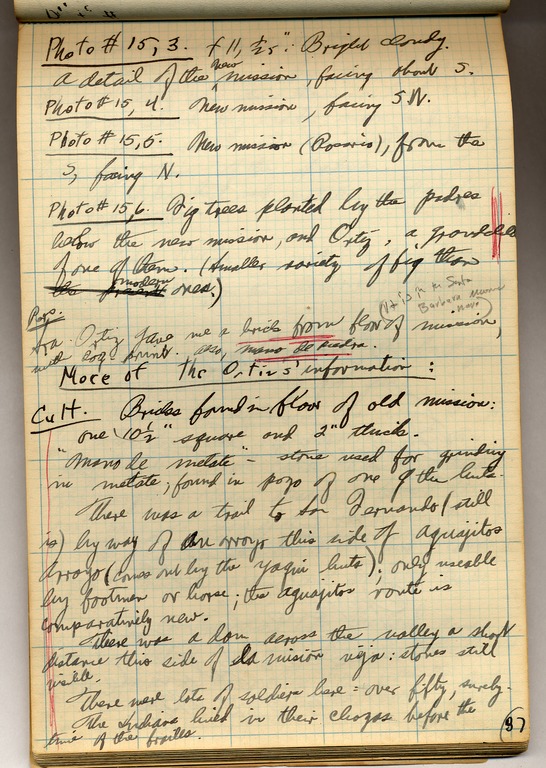 Photo # 15, 3. f 11, 1/25": Bright cloudy.
A detail of the new mission, facing about S.
Photo # 15, 4. New mission, facing SW.
Photo # 15, 5. New mission (Rosario), from the
S, facing N.
Photo # 15, 6. Fig trees planted by the padres
below the new mission, and Ortiz, a grandchild
of one of them. (Smaller variety of fig than
the modern ones.)
(It is in the Santa
Barbara museum
now)
Sra. Ortiz gave me a brick from floor of mission,
with dog print. Also, mano de piedra.
More of the Ortizs' information:
CuH. Bricks found in floor of old mission:
"one 10 1/2" square and 2" thick.
"Mano de metate" = stone used for grinding
in metate, found in pozo of one of the huts.
There was a trail to San Fernando (still
is) by way of an arroyo this side of Aguajitos
Arroyo (comes out by the Yaqui huts); only useable
by footmen or horse; the Aguajitos route is
comparatively new.
There was a dam across the valley a short
distance this side of la mision vieja: stones still
visible.
There were lots of soldiers here = over fifty, surely.
The Indians lived in their chozas before the
time of the frailes.
87